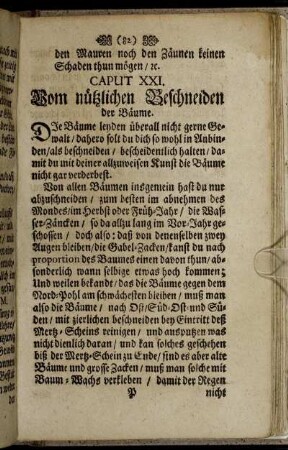 (82)
den Mauren noch den Zäunen keinen
Schaden thun mögen / ꝛc.
CAPUT XXI.
Vom nützlichen Beschneiden
der Bäume.
DJe Bäume leyden überall nicht gerne Ge-
walt / dahero solt du dich so wohl in Anbin-
den / als beschneiden / bescheidentlich halten / da-
mit du mit deiner allzuweisen Kunst die Bäume
nicht gar verderbest.
Von allen Bäumen insgemein hast du nur
abzuschneiden / zum besten im abnehmen des
Mondes / im Herbst oder Früh-Jahr / die Was-
ser-Zäncken / so da allzu lang im Vor-Jahr ge-
schossen / doch also: daß von denenselben zwey
Augen bleiben / die Gabel-Zacken / kanst du nach
proportion des Baumes einen davon thun / ab-
sonderlich wann selbige etwas hoch kommen;
Und weilen bekandt / das die Bäume gegen dem
Nord-Pohl am schwächesten bleiben / muß man
also die Bäume / nach Ost / Süd-Ost und Sü-
den / mit zierlichen beschneiden bey Eintritt deß
Mertz-Scheins reinigen / und ausputzen was
nicht dienlich daran / und kan solches geschehen
biß der Mertz-Schein zu Ende / sind es aber alte
Bäume und grosse Zacken / muß man solche mit
Baum-Wachs verkleben / damit der Regen
nicht